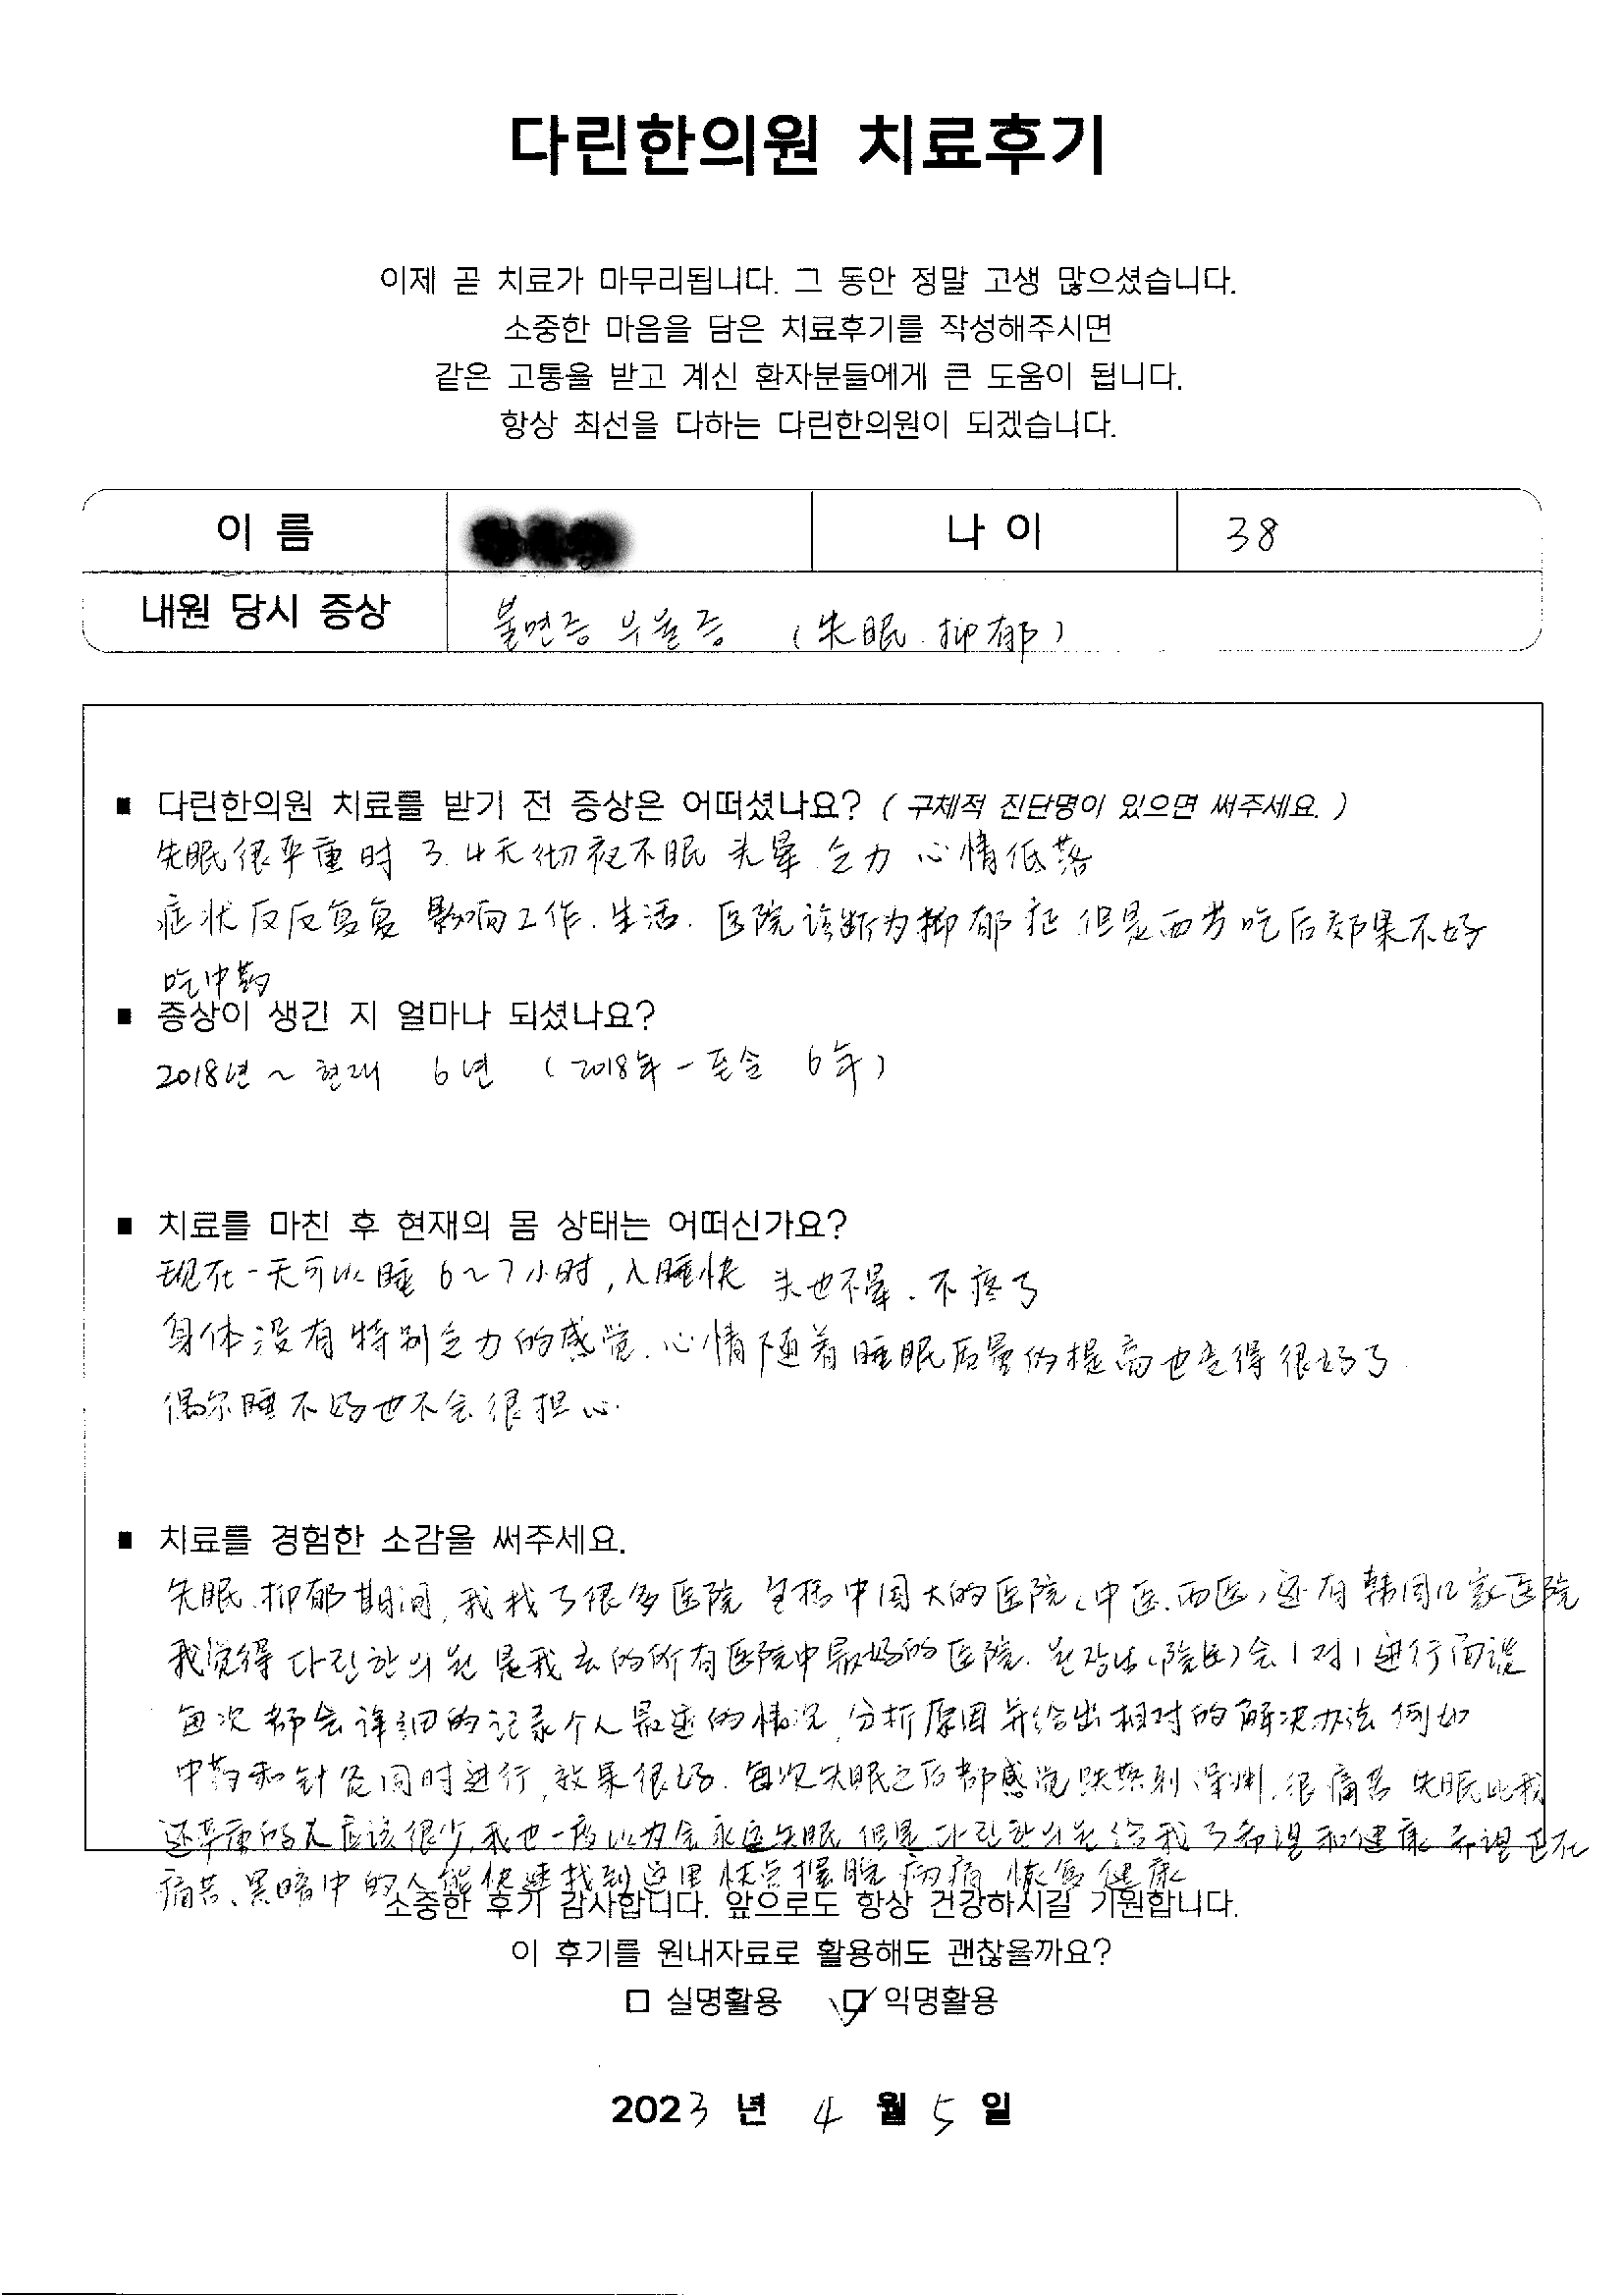 다린한의원 치료후기
이제 곧 치료가 마무리됩니다. 그 동안 정말 고생 많으셨습니다.
소중한 마음을 담은 치료후기를 작성해주시면
같은 고통을 받고 계신 환자분들에게 큰 도움이 됩니다.
항상 최선을 다하는 다린한의원이 되겠습니다.
이 름 나 이 38
내원 당시 증상 불면증 우울증 (失眠.抑郁)
■ 다린한의원 치료를 받기 전 증상은 어떠셨나요? ( 구체적 진단명이 있으면 써주세요. )
失眠很严重时 3.4天彻夜不眠 头晕.乏力 心情低落
症状反反复复 影响工作.生活. 医院诊断为抑郁症 但是西药吃后效果不好
吃中药
■ 증상이 생긴 지 얼마나 되셨나요?
2018년 ~ 현재 6년 (2018年-至今 6年)
■ 치료를 마친 후 현재의 몸 상태는 어떠신가요?
现在一天可以睡 6~7小时,入睡快 头也不晕.不疼了
身体没有特别乏力的感觉.心情随着睡眠质量的提高也变得很好了.
偶尔睡不好也不会很担心.
■ 치료를 경험한 소감을 써주세요.
失眠.抑郁期间,我找了很多医院 包括中国大的医院(中医.西医),还有韩国几家医院
我觉得 다린한의원 是我去的所有医院中最好的医院. 원장님(院长)会1对1进行面谈
每次都会详细的记录个人最近的情况,分析原因并给出相对的解决办法 例如
中药和针灸同时进行,效果很好. 每次失眠之后都感觉跌落到深渊.很痛苦 失眠比我
还辛苦的人应该很少,我也一度以为会永远失眠 但是 다린한의원给我了希望和健康 希望正在
痛苦、黑暗中的人能快速找到这里 快点摆脱病痛 恢复健康
소중한 후기 감사합니다. 앞으로도 항상 건강하시길 기원합니다.
이 후기를 원내자료로 활용해도 괜찮을까요?
□ 실명활용 ☑ 익명활용
2023 년 4 월 5 일